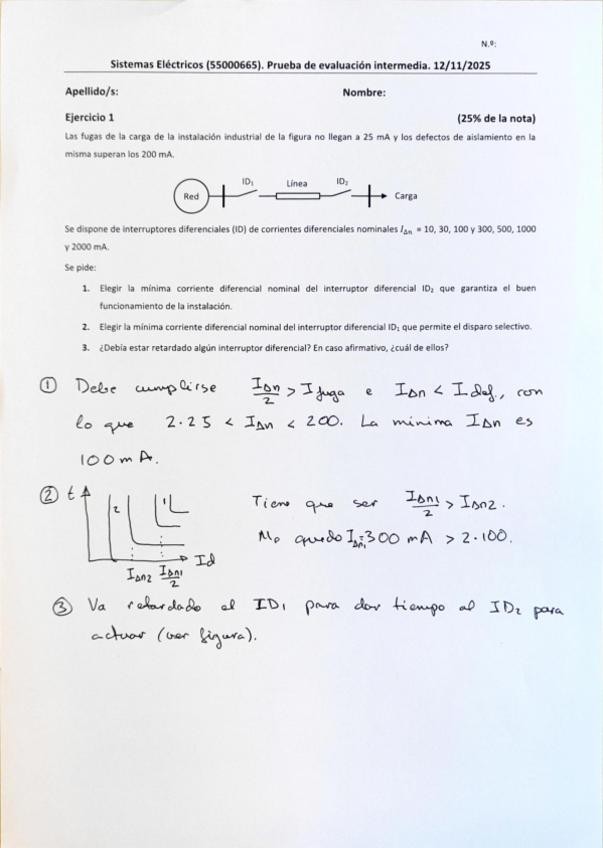 N.º:
Sistemas Eléctricos (55000665). Prueba de evaluación intermedia. 12/11/2025
Apellido/s: Nombre:
Ejercicio 1 (25% de la nota)
Las fugas de la carga de la instalación industrial de la figura no llegan a 25 mA y los defectos de aislamiento en la
misma superan los 200 mA.
Red ID₁ Línea ID₂ Carga
Se dispone de interruptores diferenciales (ID) de corrientes diferenciales nominales IΔn = 10, 30, 100 y 300, 500, 1000
y 2000 mA.
Se pide:
1. Elegir la mínima corriente diferencial nominal del interruptor diferencial ID₂ que garantiza el buen
funcionamiento de la instalación.
2. Elegir la mínima corriente diferencial nominal del interruptor diferencial ID₁ que permite el disparo selectivo.
3. ¿Debía estar retardado algún interruptor diferencial? En caso afirmativo, ¿cuál de ellos?
① Debe cumplirse IΔn/2 > I fuga e IΔn < I def., con
lo que 2·25 < IΔn < 200. La mínima IΔn es
100 mA.
② t 2 1 Id
IΔn2 IΔn1/2
Tiene que ser IΔn1/2 > IΔn2.
Me quedo IΔn1=300 mA > 2·100.
③ Va retardado el ID₁ para dar tiempo al ID₂ para
actuar (ver figura).